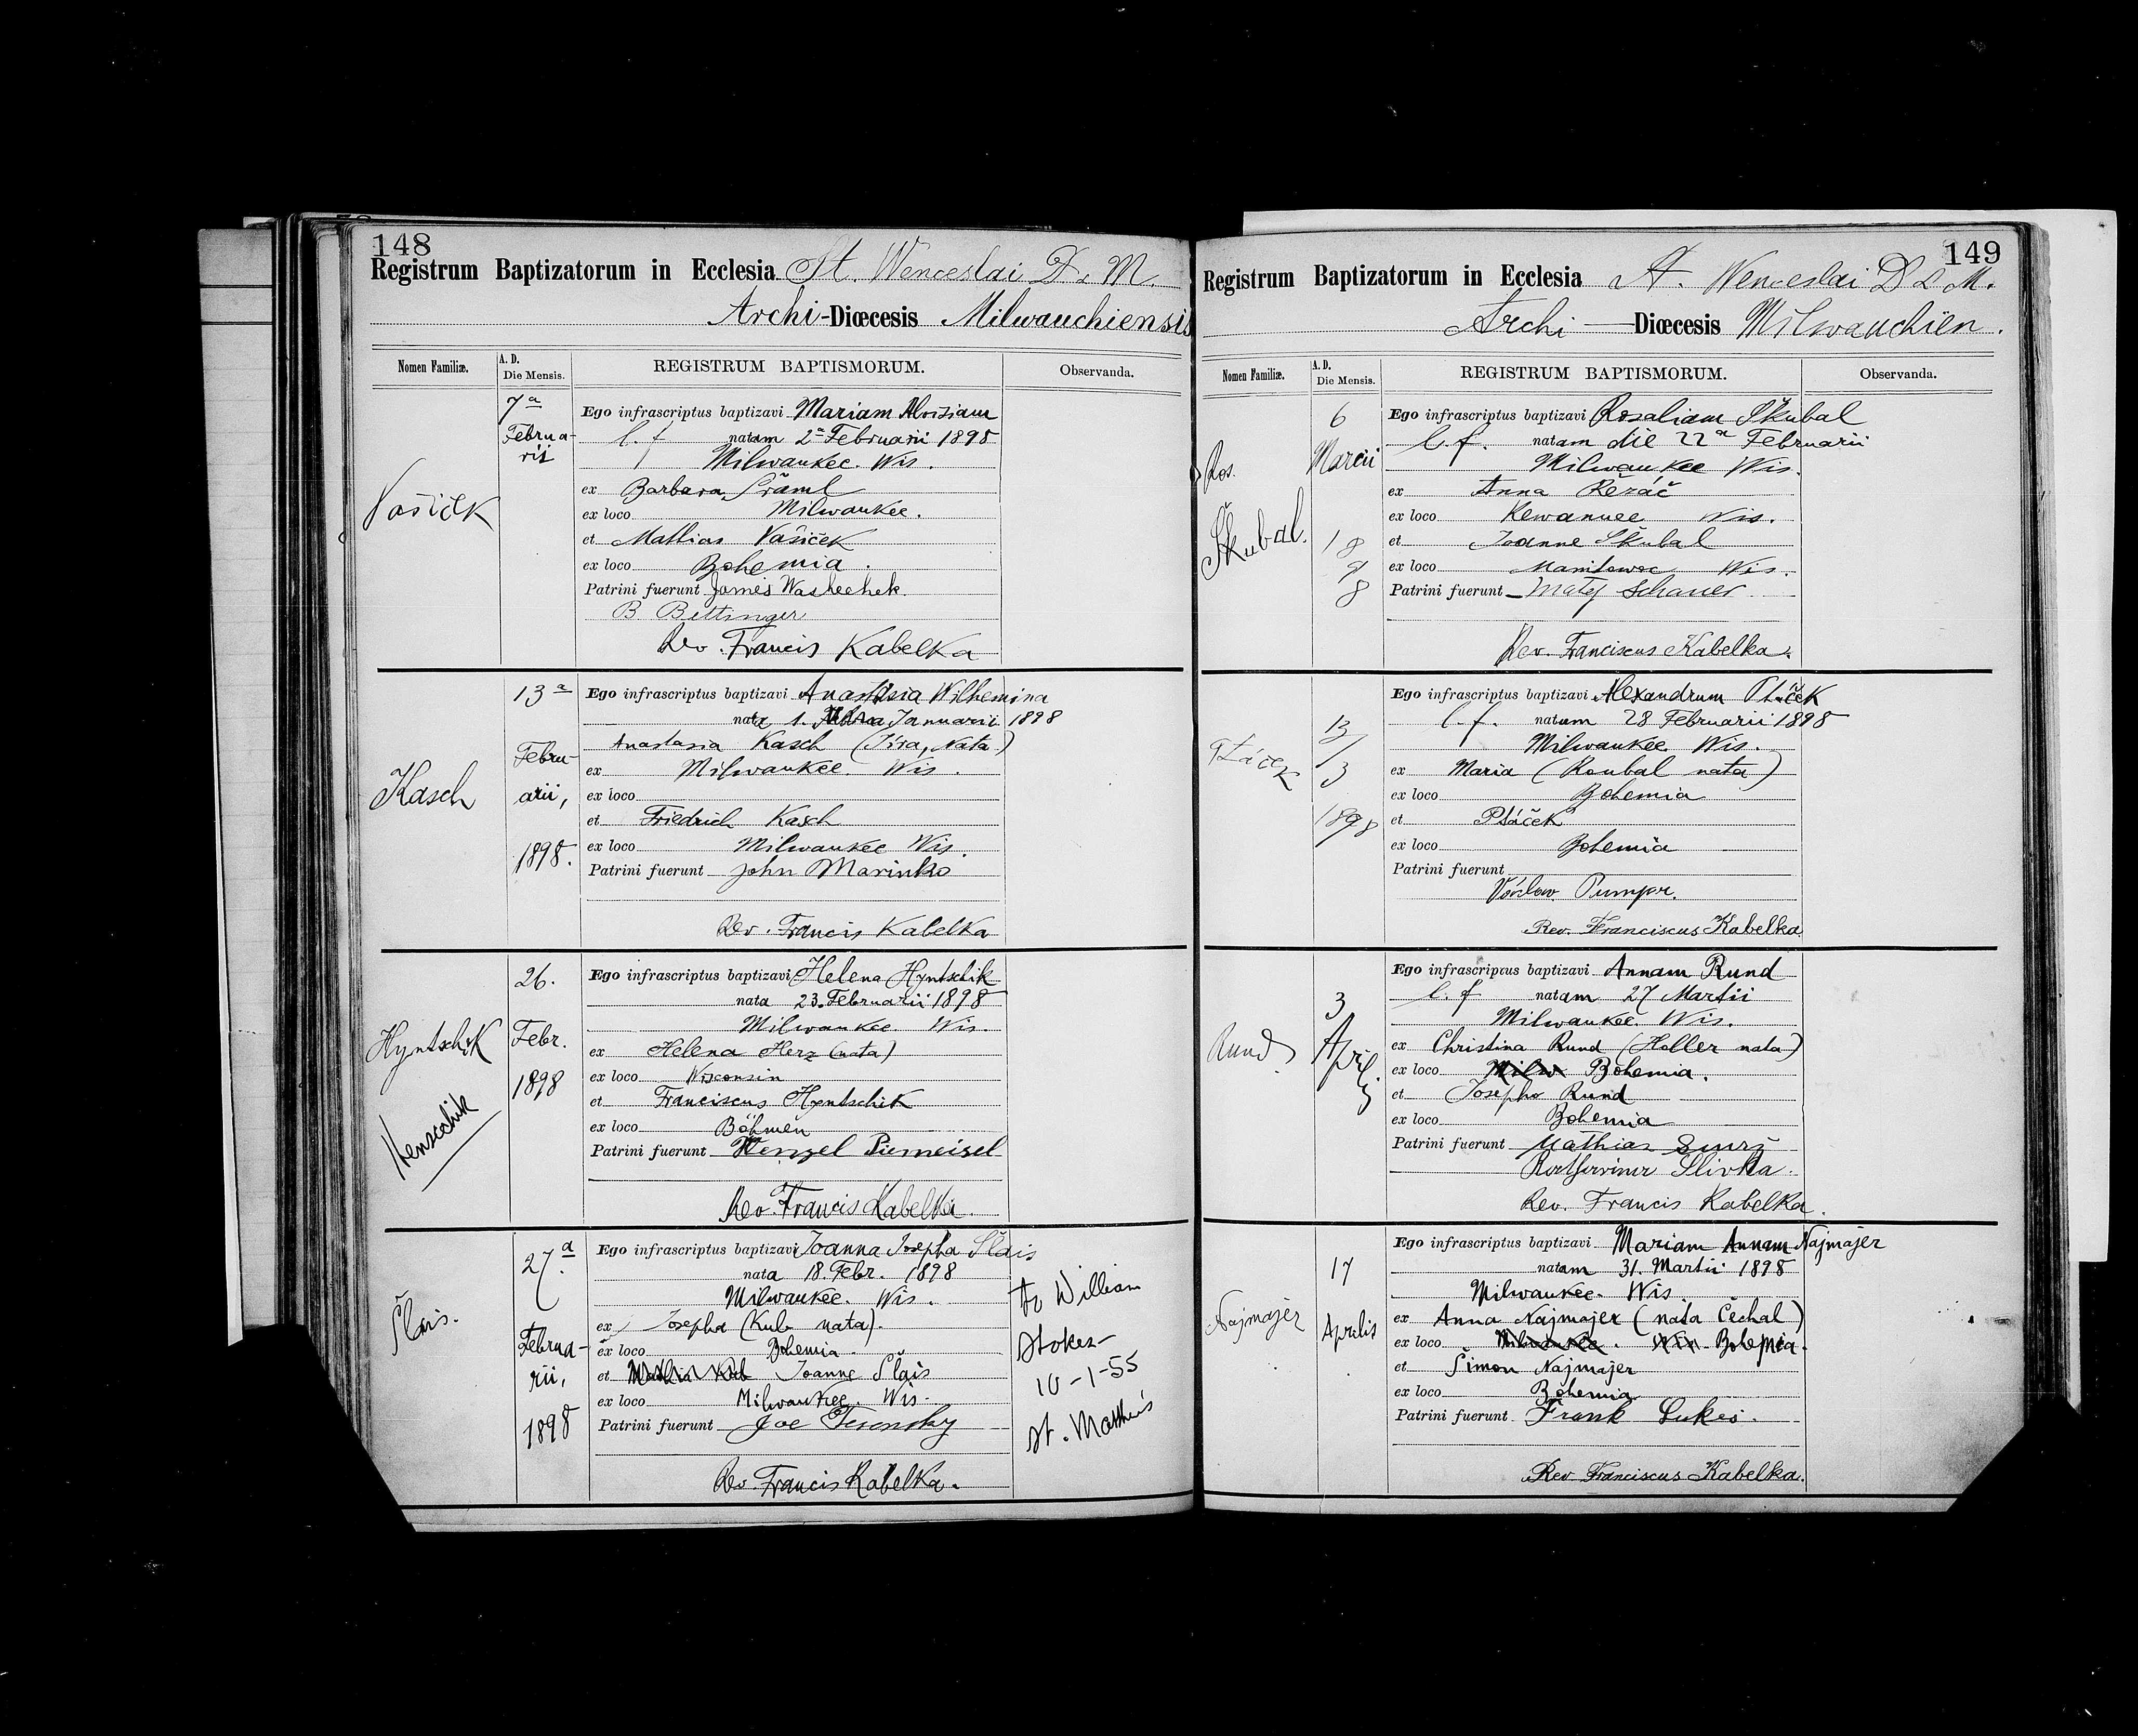 148
Registrum Baptizatorum in Ecclesia St. Wenceslai D. M.
Archi-Diœcesis Milwauchiensis
Nomen Familiæ.
A. D.
Die Mensis.
REGISTRUM BAPTISMORUM.
Observanda.
Vašiček
7a
Februa-
rii
Ego infrascriptus baptizavi Mariam Aloisiam
l. f natam 2a Februarii 1898
Milwaukee. Wis.
ex Barbara
ex loco Milwaukee.
et Mathias Vašiček
ex loco Bohemia.
Patrini fuerunt James Washechek
B Bittinger
Rev. Francis Kabelka
Kasch
13a
Febru-
arii,
1898.
Ego infrascriptus baptizavi Anastasia Wilhemina
nata 1. Januarii 1898
Anastasia Kasch (Jira, Nata)
ex Milwaukee. Wis.
ex loco
et Friedrich Kasch
ex loco Milwaukee Wis.
Patrini fuerunt John Marinko
Rev. Francis Kabelka
Hyntschik
Henschik
26.
Febr.
1898
Ego infrascriptus baptizavi Helena Hyntschik
nata 23. Februarii 1898
Milwaukee. Wis.
ex Helena Herz (nata)
ex loco Wisconsin
et Franciscus Hyntschik
ex loco Böhmen
Patrini fuerunt Wenzel Piemeisel
Rev. Francis Kabelka.
Šlais.
27.a
Februa-
rii,
1898
Ego infrascriptus baptizavi Joanna Josepha Šlais
nata 18. Febr. 1898
Milwaukee. Wis.
ex Josepha (Kub nata).
ex loco Bohemia.
et Joanne Šlais
ex loco Milwaukee. Wis.
Patrini fuerunt Joe
Rev. Francis Kabelka.
to William
Stokes-
10-1-55
St. Matthew's
149
Registrum Baptizatorum in Ecclesia St. Wenceslai D & M.
Archi-Diœcesis Milwauchien.
Nomen Familiæ.
A. D.
Die Mensis.
REGISTRUM BAPTISMORUM.
Observanda.
Ros.
Škubal.
6
Marcii
1 8
9
8
Ego infrascriptus baptizavi Rosaliam Škubal
l. f. natam die 22a Februarii
Milwaukee Wis.
ex Anna Řezáč
ex loco Kewaunee Wis.
et Joanne Škubal
ex loco Manitowoc Wis.
Patrini fuerunt Matej Schauer
Rev. Franciscus Kabelka.
Ptáček
13/
3
1898
Ego infrascriptus baptizavi Alexandrum Ptaček
l. f. natum 28 Februarii 1898
Milwaukee Wis.
ex Maria (Roubal nata)
ex loco Bohemia
et Ptáček
ex loco Bohemia
Patrini fuerunt
Václav Pumpr.
Rev. Franciscus Kabelka
Rund
3
Aprilis
Ego infrascriptus baptizavi Annam Rund
l. f natam 27 Martii
Milwaukee. Wis.
ex Christina Rund (Holler nata)
ex loco Milw Bohemia.
et Josepho Rund
ex loco Bohemia
Patrini fuerunt Mathias
Slivka.
Rev. Francis Kabelka.
Najmajer
17
Aprilis
Ego infrascriptus baptizavi Mariam Annam Najmajer
natam 31. Martii 1898
Milwaukee. Wis
ex Anna Najmajer (nata Čechal)
ex loco Milwaukee. Wis. Bohemia.
et Šimon Najmajer
ex loco Bohemia
Patrini fuerunt Frank Lukes.
Rev. Franciscus Kabelka.